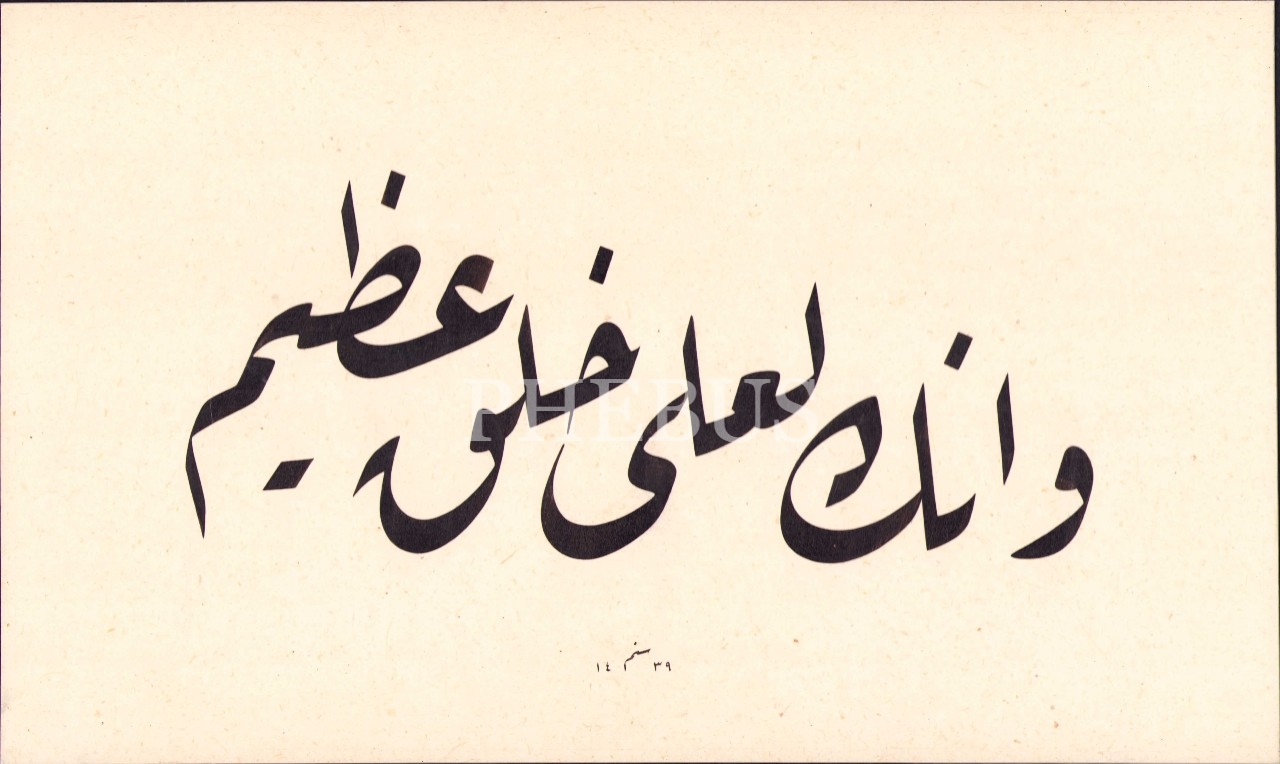 وانك لعلى خلق عظيم
PHEBUS
سنة ١٤٣٩